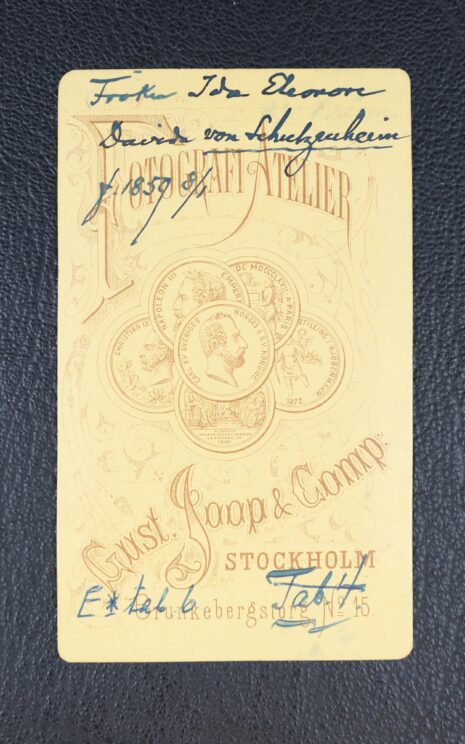 Fröken Ida Eleonore
Davida von Schulzenheim
f. 1859 8/1
FOTOGRAFI ATELIER
NAPOLEON III EMPEREUR
DE MDCCCLXVII A PARIS
CHRISTIAN IX
CARL XV SVERIGES NORGES G. O. V. KONUNG
UDSTILLING I KJÖBENHAVN
1872
Gust. Joop & Comp.
STOCKHOLM
E * tab 6 Tab 4.
Brunkebergstorg No 15